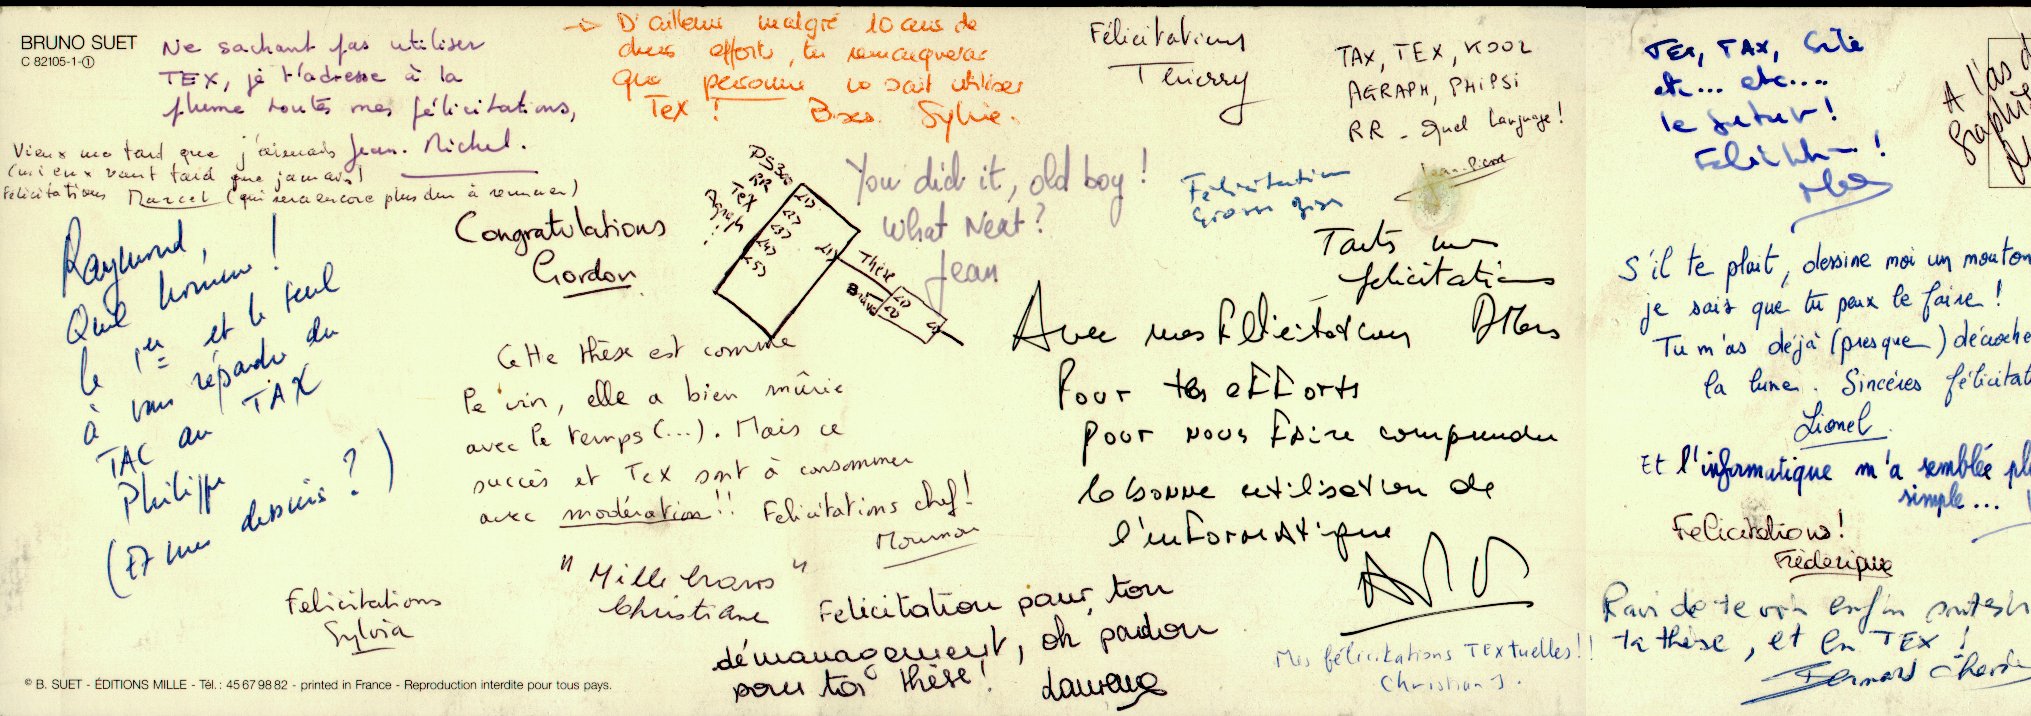 BRUNO SUET
C 82105-1-①
Ne sachant pas utiliser
TEX, je t'adresse à la
plume toutes mes félicitations,
Jean-Michel.
→ D'ailleurs malgré 10 ans de
durs efforts, tu remarqueras
que personne ne sait utiliser
TeX ! Bises. Sylvie.
Félicitations
Thierry
TAX, TEX, KOOL
AGRAPH, PHIPSI
RR - Quel Language!
Jean-Pierre
TEX, TAX, Gilé
etc... etc....
le futur!
A l'as d
Graphi
Vieux mo tard que j'aimais
(mieux vaut tard que jamais)
Félicitations Marcel (qui sera encore plus dur à
Raymond,
Quel homme !
le 1er et le seul
à nous répondre du
TAC au TAX
Philippe
(Et mes dessins ?)
Congratulations
Gordon
PS300
RR
TeX
Agraph
!
<1>
<2>
<3>
<4>
<5>
Thèse
You did it, old boy !
What Next?
Jean
Félicitations
Grosses bises
Toutes mes
félicitations
Cette thèse est comme
le vin, elle a bien mûrie
avec le temps (...). Mais ce
succès et TeX sont à consommer
avec modération!! Félicitations chef!
Mouman
Avec mes Félicitations
Pour tes efforts
pour nous faire comprendre
la bonne utilisation de
l'informatique
S'il te plait, dessine moi un mouton
je sais que tu peux le faire !
Tu m'as déjà (presque) décroché
la lune. Sincères félicitat
Lionel
Et l'informatique m'a semblée pl
simple...
Félicitations!
Frédérique
Ravi de te voir enfin soutenir
ta thèse, et en TEX !
Bernard
Félicitations
Sylvia
"Mille bravos"
Christiane
Félicitation pour ton
démanagement, oh pardon
pour ta thèse!
Laurence
Mes félicitations TEXtuelles!!
Christian J.
© B. SUET - ÉDITIONS MILLE - Tél. : 45 67 98 82 - printed in France - Reproduction interdite pour tous pays.